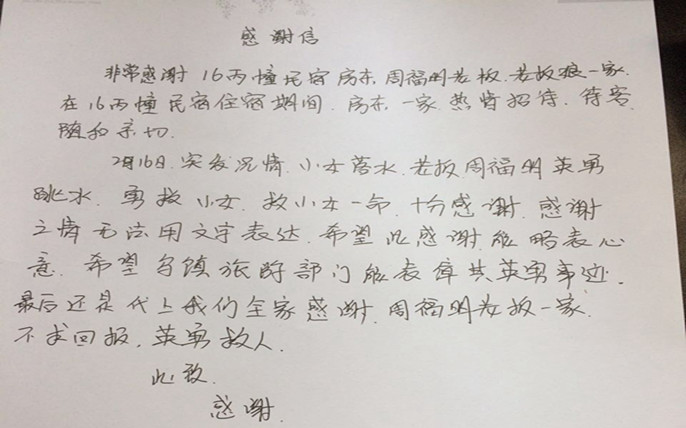 感谢信
非常感谢16丙幢民宿房东.周福明老板.老板娘一家.
在16丙幢民宿住宿期间.房东一家热情招待.待客
随和亲切.
2月16日.突发沉情.小女落水.老板周福明英勇
跳水.勇救小女.救小女一命.十分感谢.感谢
之情无法用文字表达.希望此感谢能略表心
意.希望乌镇旅游部门能表倖其英勇事迹.
最后还是代上我们全家感谢.周福明老板一家.
不求回报.英勇救人.
此致.
感谢.